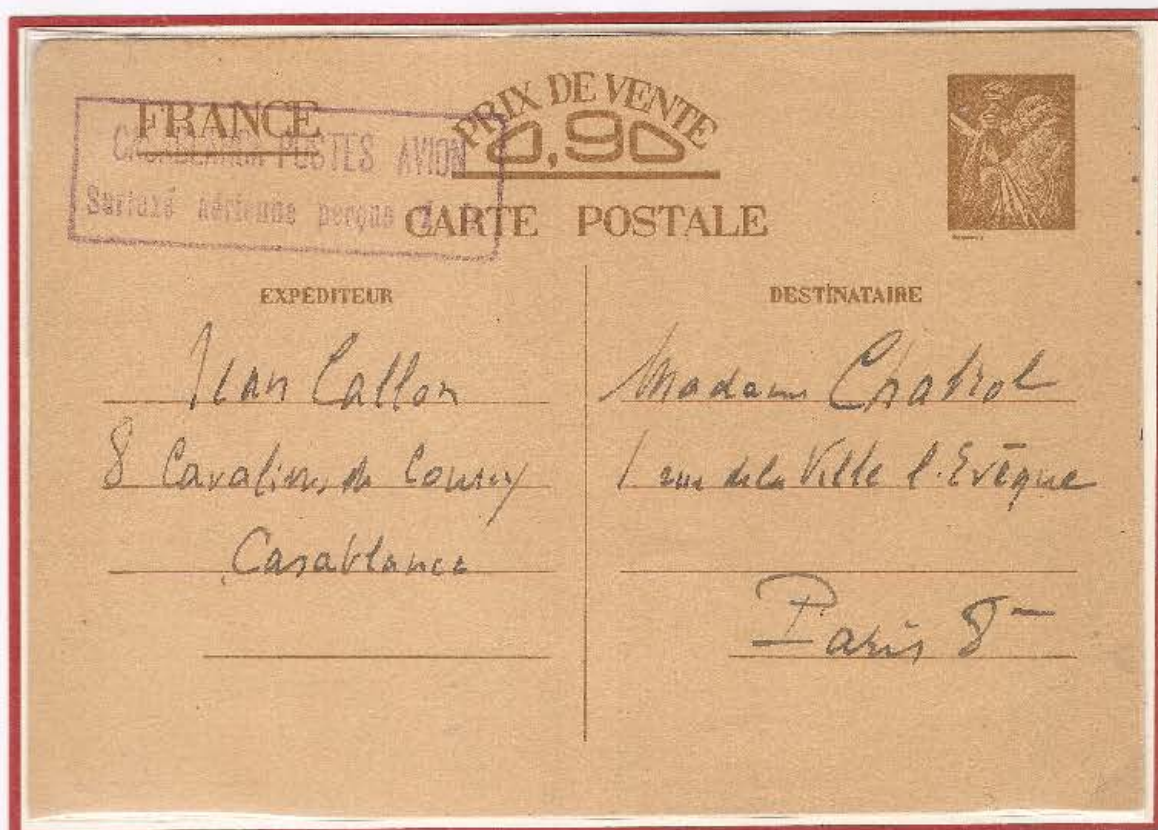 FRANCE
PRIX DE VENTE
0,90
CASABLANCA POSTES AVION
Surtaxe aérienne perçue
CARTE POSTALE
EXPÉDITEUR
Jean Callon
8 Cavaliers de Courcy
Casablanca
DESTINATAIRE
Madame Chabrol
1 rue de la Ville l'Evêque
Paris 8